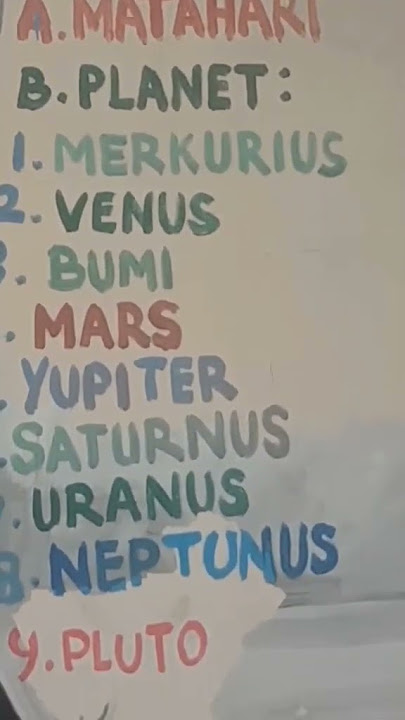 A. MATAHARI
B. PLANET:
1. MERKURIUS
2. VENUS
3. BUMI
. MARS
. YUPITER
. SATURNUS
. URANUS
8. NEPTUNUS
9. PLUTO